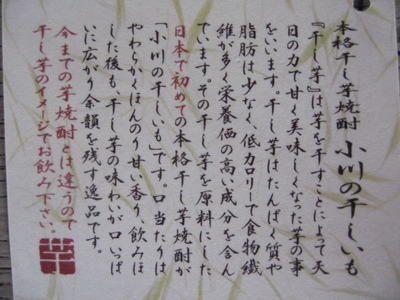 本格干し芋焼酎 小川の干しいも
『干し芋』は芋を干すことによって天
日の力で甘く美味しくなった芋の事
をいいます。干し芋はたんぱく質や
脂肪は少なく、低カロリーで食物繊
維が多く栄養価の高い成分を含ん
でいます。その干し芋を原料にした
日本で初めての本格干し芋焼酎が
「小川の干しいも」です。口当たりは
やわらかくほんのり甘い香り、飲みほ
した後も、干し芋の味わいが口いっぱ
いに広がり余韻を残す逸品です。
今までの芋焼酎とは違うので
干し芋のイメージでお飲み下さい。